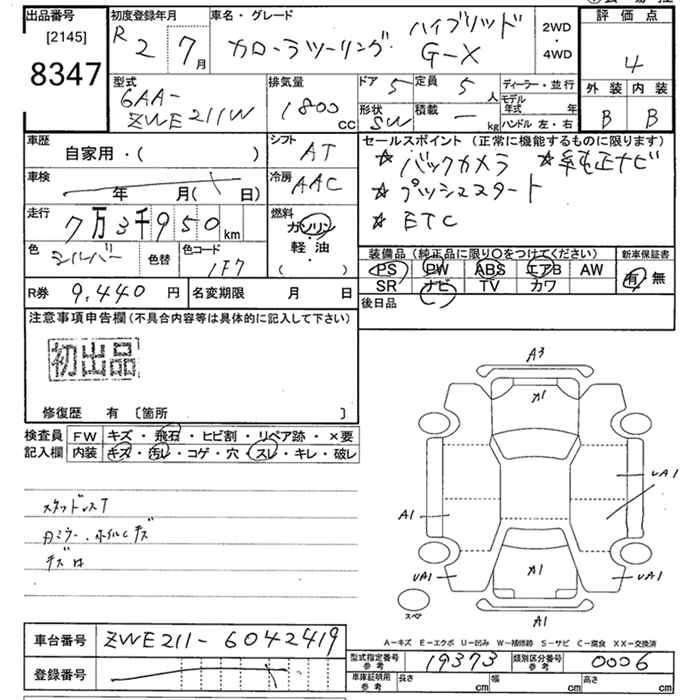 出品番号
[2145]
8347
初度登録年月
R 2 7月
車名・グレード
カローラツーリング ハイブリッド G-X
2WD
・
4WD
評価点
4
外装 内装
B B
型式
6AA-
ZWE211W
排気量
1800
cc
ドア 5
定員 5人
ディーラー・並行
形状 SW
積載 kg
モデル年式 年
ハンドル 左・右
車歴
自家用・( )
シフト AT
車検
年 月( 日)
冷房 AAC
走行
7万3千950km
燃料
ガソリン
軽・油
( )
色 シルバー 色替
色コード 1F7
セールスポイント(正常に機能するものに限ります)
☆バックカメラ ☆純正ナビ
☆プッシュスタート
☆ETC
装備品(純正品に限り〇をつけてください)
新車保証書
PS PW ABS エアB AW
SR ナビ TV カワ
有・無
後日品
R券 9,440 円
名変期限 月 日
注意事項申告欄(不具合内容等は具体的に記入して下さい)
初出品
修復歴 有 〔箇所 〕
検査員
記入欄
FW キズ・飛石・ヒビ割・リペア跡・×要
内装 キズ・汚レ・コゲ・穴・スレ・キレ・破レ
スタッドレスT
ホイルCキズ
A3
A1
UA1
A1
UA1
A1
UA1
スペア
A1
A-キズ E-エクボ U-凹み W-補修跡 S-サビ C-腐食 XX-交換済
車台番号 ZWE211-6042419
登録番号
型式指定番号
参考
19373
類別区分番号
参考
0006
車庫証明用
参考
長さ cm
幅 cm
高さ cm